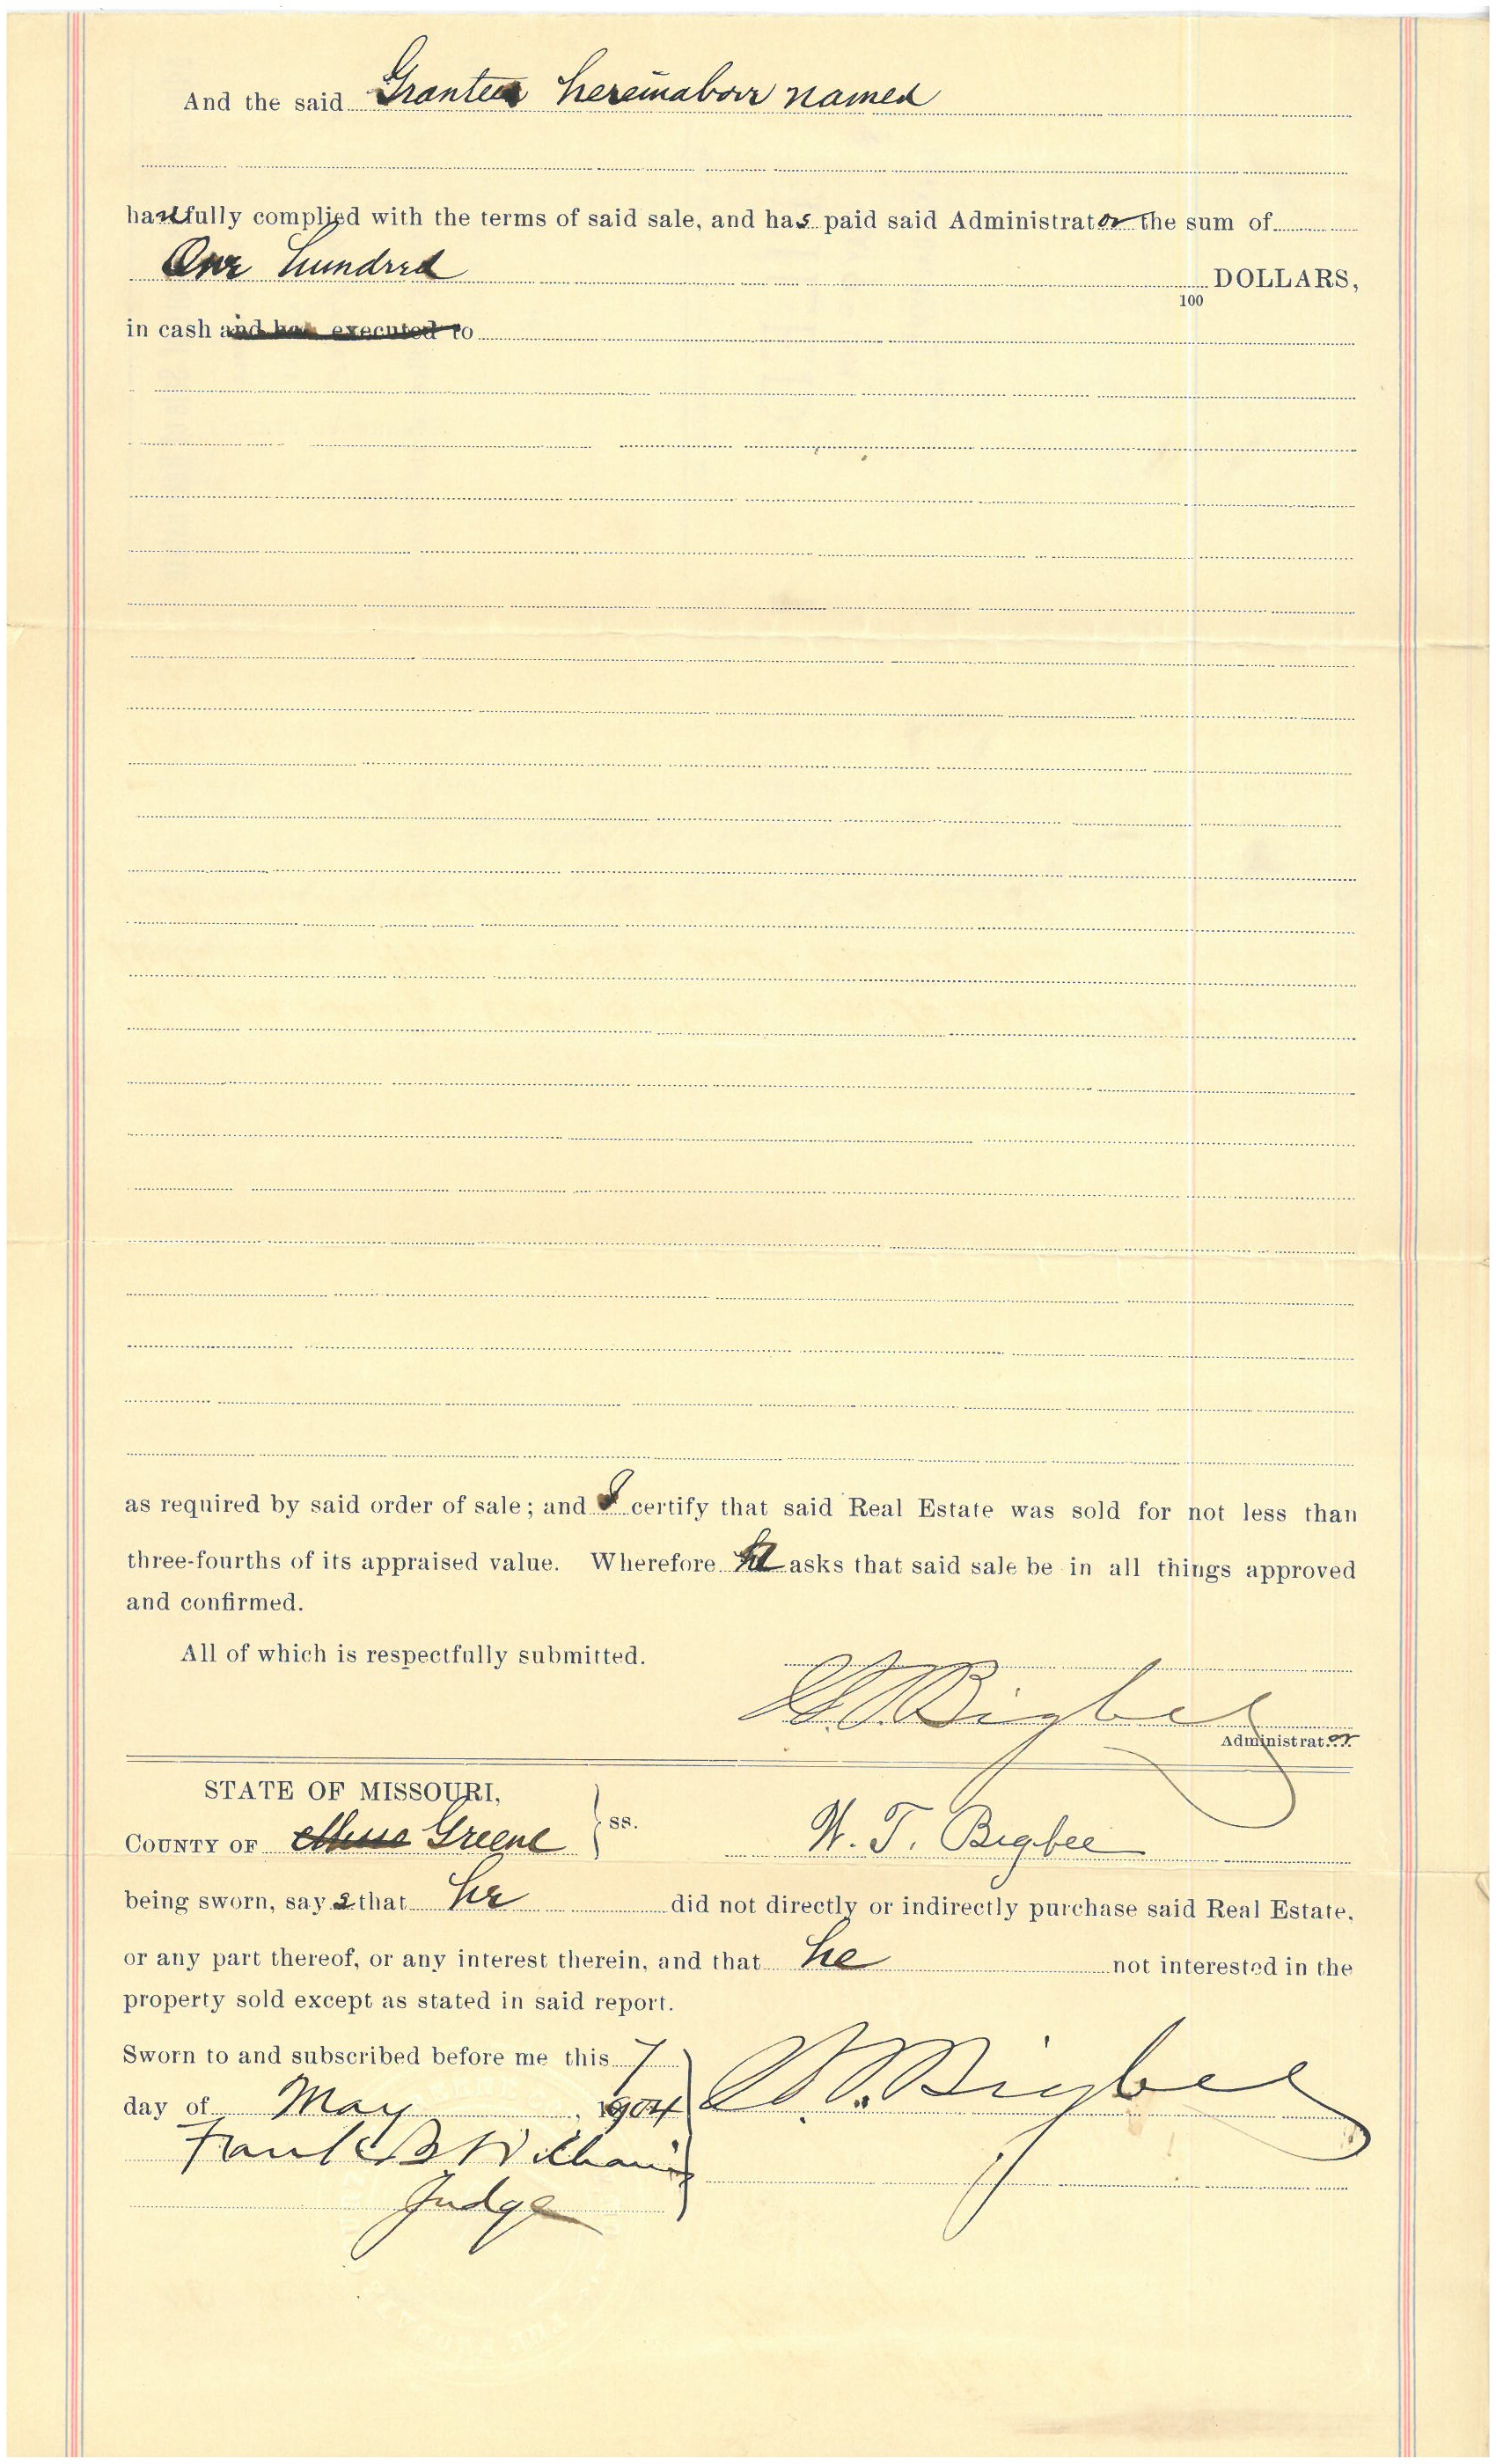 And the said Grantee hereinabove named
has fully complied with the terms of said sale, and has paid said Administrator the sum of
One hundred DOLLARS,
100
in cash and has executed to
as required by said order of sale; and I certify that said Real Estate was sold for not less than
three-fourths of its appraised value. Wherefore he asks that said sale be in all things approved
and confirmed.
All of which is respectfully submitted.
W. T. Bigbee
Administrator
STATE OF MISSOURI,
COUNTY OF Greene ss. W. T. Bigbee
being sworn, says that he did not directly or indirectly purchase said Real Estate,
or any part thereof, or any interest therein, and that he not interested in the
property sold except as stated in said report.
Sworn to and subscribed before me this 7
day of May, 1904 W. T. Bigbee
Frank B Williams
Judge